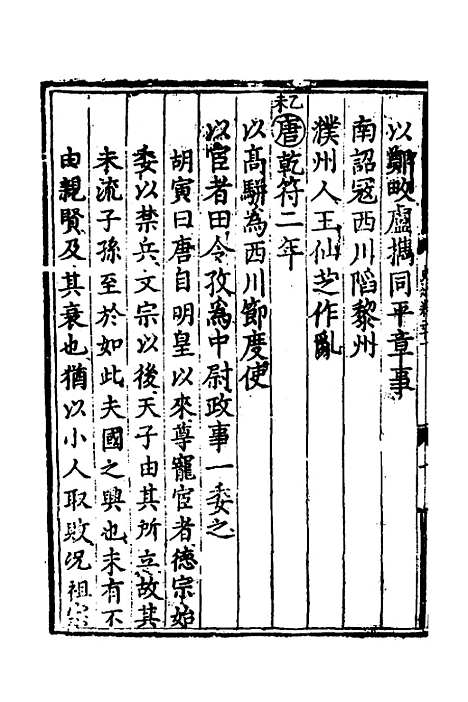 以鄭畋盧攜同平章事
南詔冦西川陷黎州
濮州人王仙芝作亂
乙未
唐乾符二年
以高駢為西川節度使
以宦者田令孜為中尉政事一委之
胡寅曰唐自明皇以來尊寵宦者德宗始
委以禁兵文宗以後天子由其所立故其
末流子孫至於如此夫國之興也未有不
由親賢及其衰也猶以小人取敗况祖宗